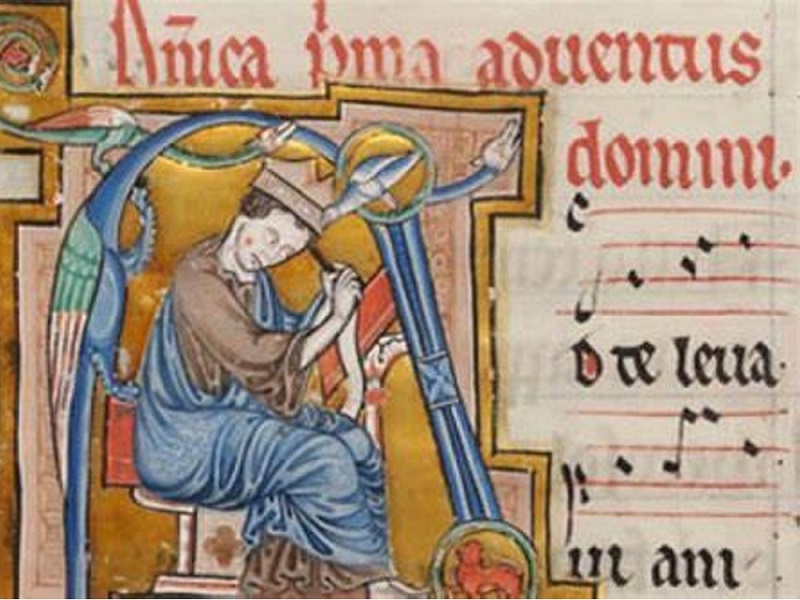 Dñica pͥma aduentus
domini.
A
D te leua
ui ani